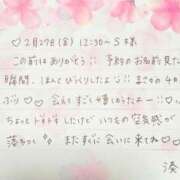 ♡2月27日(金) 12:30~ S様
この前はありがとう!! 予約のお名前見た
瞬間、ほんとびっくりしたよ
ぶり♡ 会えてすごく嬉しかったよー!!
ちょっとドキドキしたけど いつもの空気感が
落ちつく また すぐに 会いに来てね♡
湊